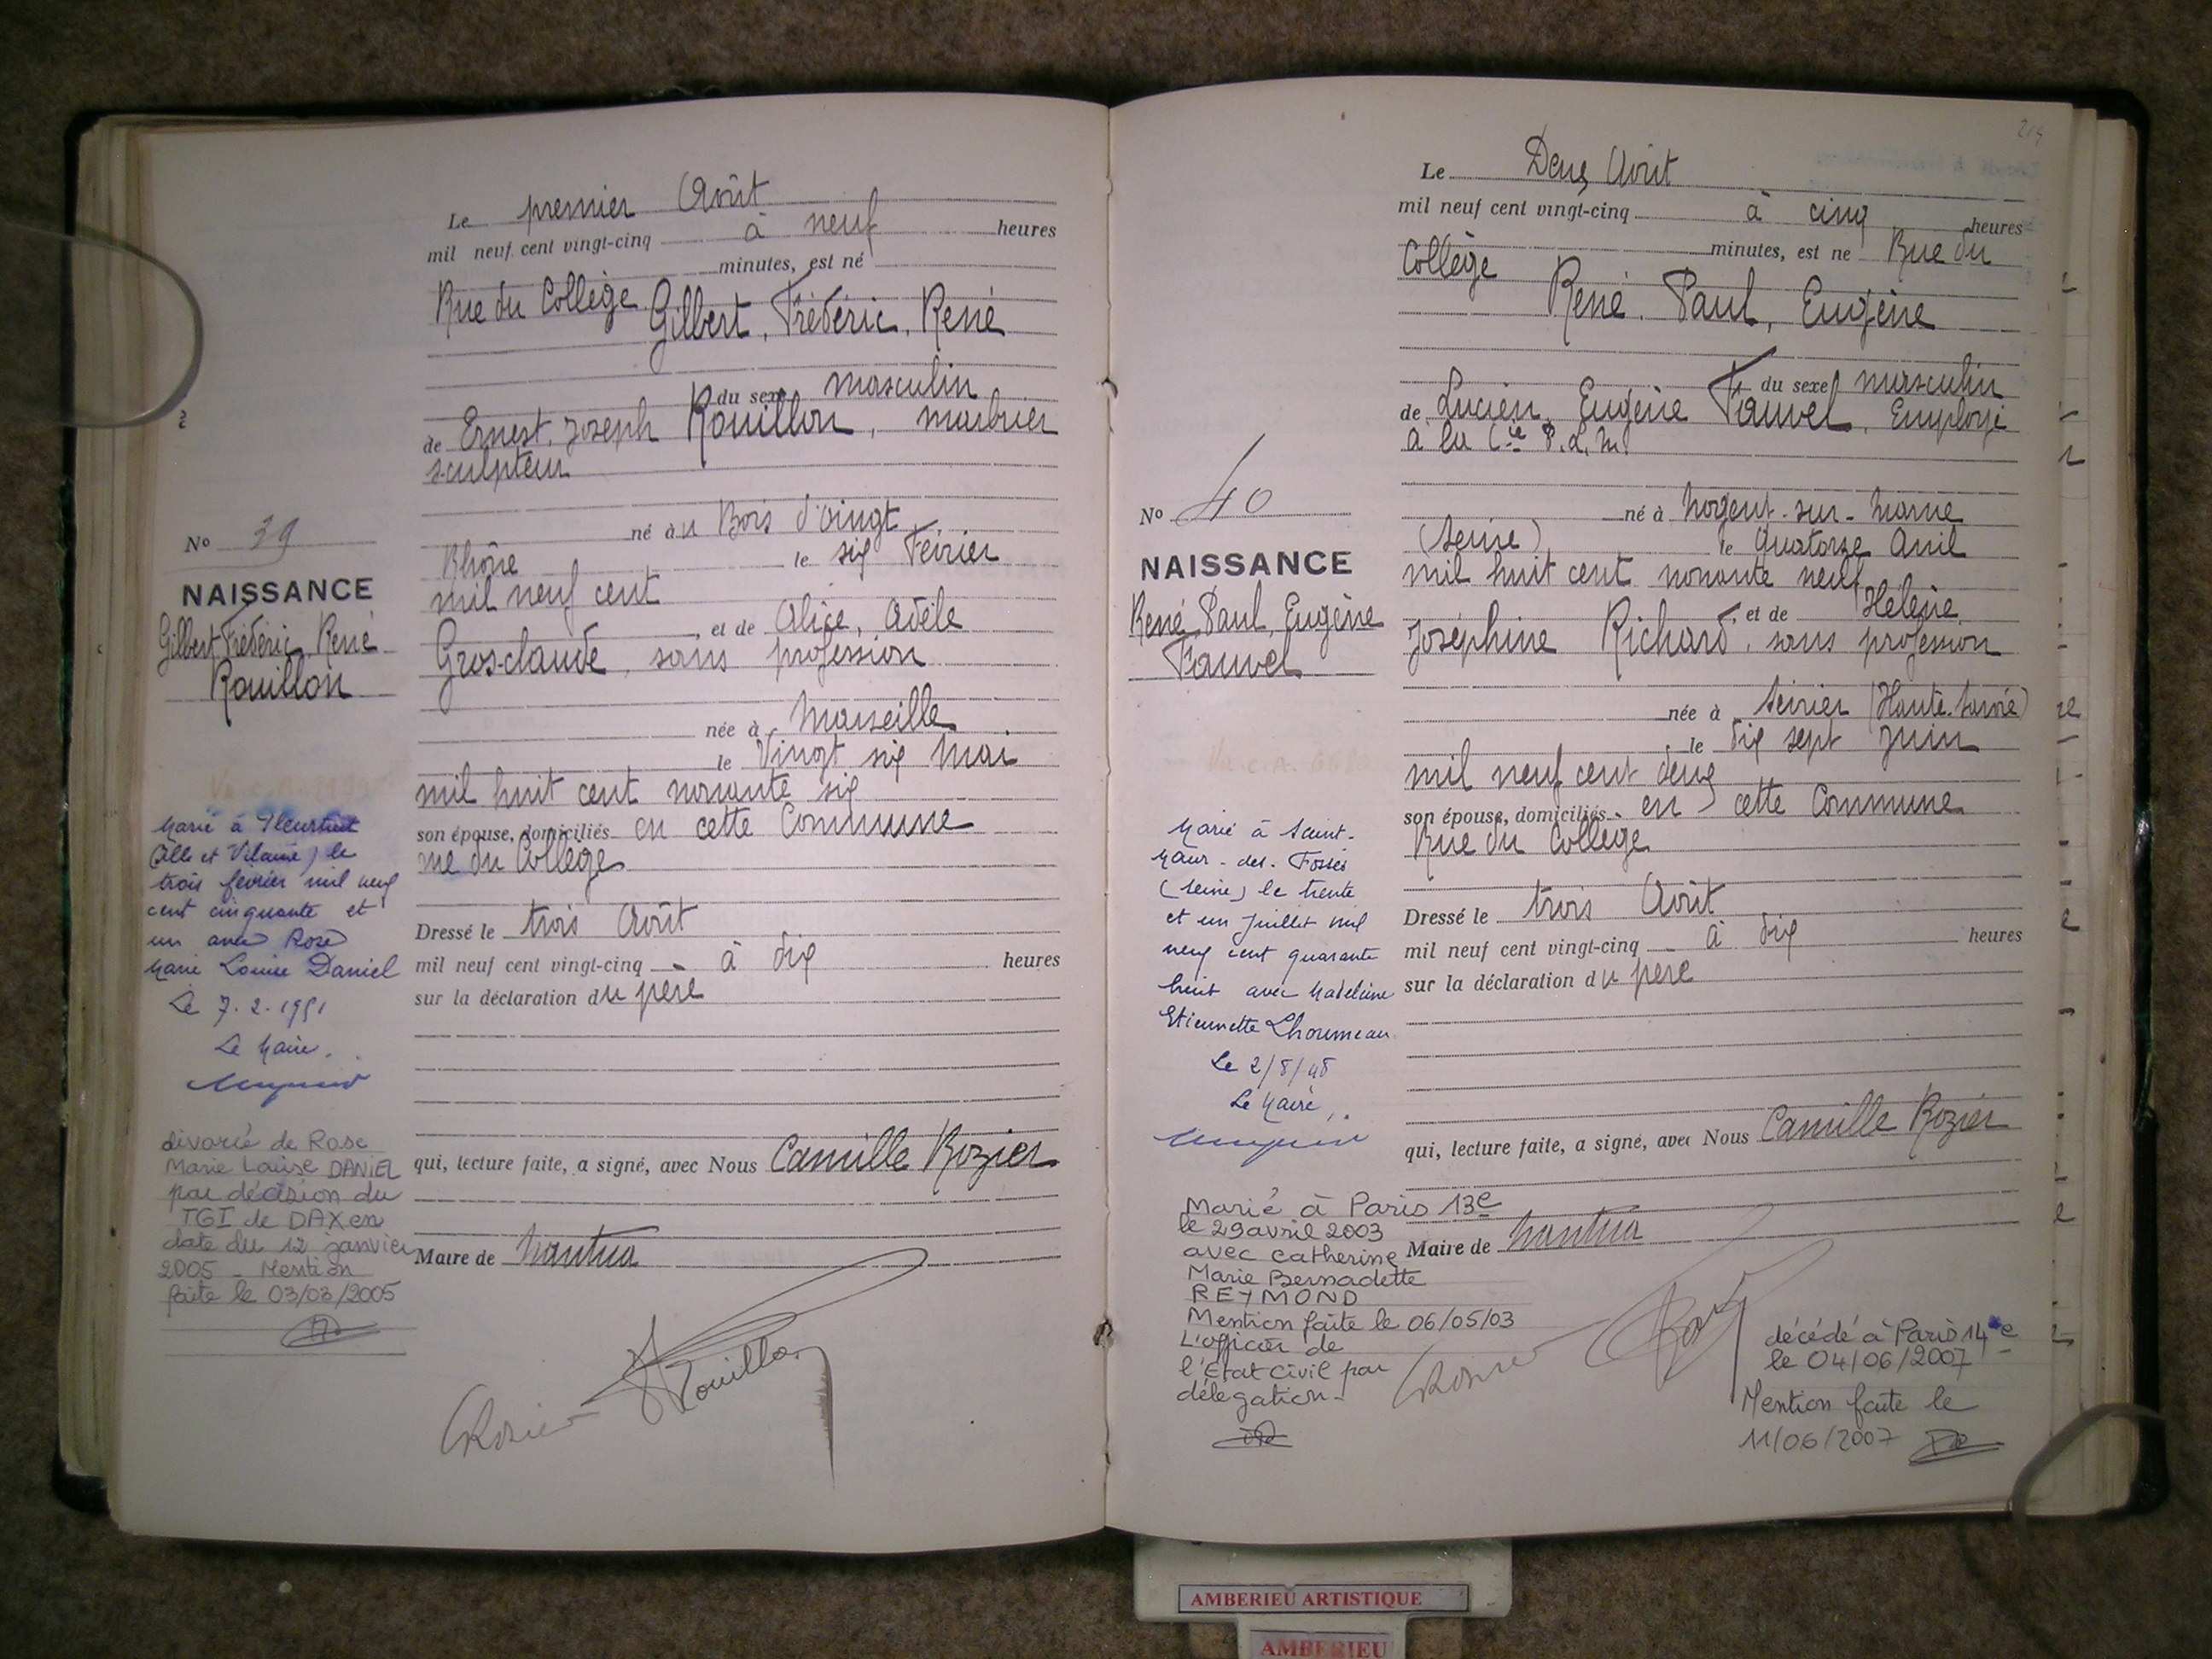 Le premier Août
mil neuf cent vingt-cinq à neuf heures
minutes, est né
Rue du Collège Gilbert, Frédéric, René
du sexe masculin
de Ernest, Joseph Rouillon, marbrier
sculpteur
né au Bois d'Oingt
Rhône le six Février
mil neuf cent
, et de Alice, Adèle
Gros-claude, sans profession
née à Marseille
le Vingt six Mai
mil huit cent nonante six
son épouse, domiciliés en cette Commune
rue du Collège
Dressé le trois Août
mil neuf cent vingt-cinq à dix heures
sur la déclaration du père
qui, lecture faite, a signé, avec Nous Camille Rozier
Maire de Nantua
CRozier Rouillon
No 39
NAISSANCE
Gilbert Frédéric, René
Rouillon
Marié à Pleurtuit
(Ille et Vilaine) le
trois février mil neuf
cent cinquante et
un avec Rose
Marie Louise Daniel
Le 7.2.1951
Le Maire.
divorcé de Rose
Marie Louise DANIEL
par décision du
TGI de DAX en
date du 12 janvier
2005 - Mention
faite le 03/03/2005
214
Le Deux Août
mil neuf cent vingt-cinq à cinq heures
minutes, est né Rue du
Collège René, Paul, Eugène
du sexe masculin
de Lucien, Eugène Fauvel, Employé
à la Cie P.L.M.
né à Nogent-sur-Marne
(Seine) le Quatorze Avril
mil huit cent nonante neuf
, et de Hélène
Joséphine Richard, sans profession
née à Seyrier (Haute-Savoie)
le dix sept Juin
mil neuf cent deux
son épouse, domiciliés en cette Commune
Rue du Collège
Dressé le trois Août
mil neuf cent vingt-cinq à dix heures
sur la déclaration du père
qui, lecture faite, a signé, avec Nous Camille Rozier
Maire de Nantua
CRozier
No 40
NAISSANCE
René, Paul, Eugène
Fauvel
Marié à Saint-
Maur-des-Fossés
(Seine) le trente
et un Juillet mil
neuf cent quarante
huit avec Madeleine
Etiennette Lhoumeau
Le 2/8/48
Le Maire,
Marié à Paris 13e
le 29 avril 2003
avec Catherine
Marie Bernadette
REYMOND
Mention faite le 06/05/03
L'officier de
l'Etat Civil par
délégation-
décédé à Paris 14e
le 04/06/2007
Mention faite le
11/06/2007
AMBERIEU ARTISTIQUE
AMBERIEU